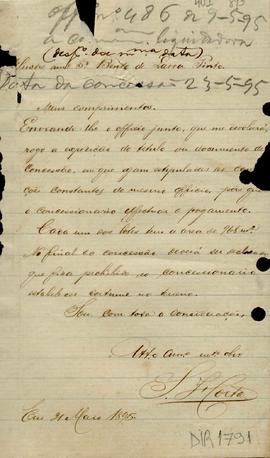 Off.º nº 486 de 9-5-95
a Comm. liquidadora
(desp.º da mesma data)
Illustre amº Sr. Bento de Lassa Pinto
Data da concessão 23-5-95
Meus comprimentos.
Enviando-lhe o officio junto, que me devolverá,
rogo a expedição do titulo ou documento de
Concessão, em que sejam estipuladas as
ções constantes do mesmo officio, por que
o concessionario effectuou o pagamento.
Cada um dos lotes tem a area de 968 m².
No final da concessão deverá ser
que fica prohibido ao concessionario
estabelecer cortume no terreno.
Sou, com toda a consideração,
Att.º Am.º
Em 21 Maio 1895.
DIR 1791